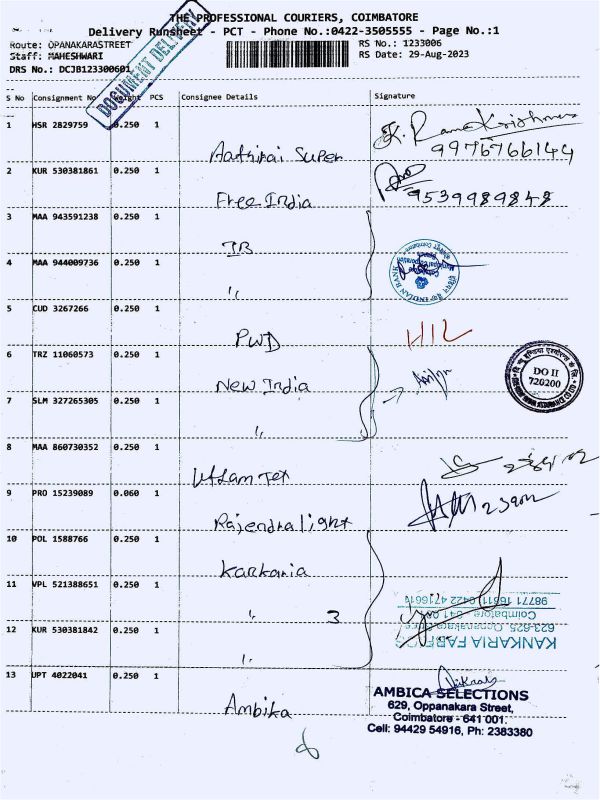 THE PROFESSIONAL COURIERS, COIMBATORE
Delivery Runsheet - PCT - Phone No.:0422-3505555 - Page No.:1
Route: OPANAKARASTREET
RS No.: 1233006
Staff: MAHESHWARI
RS Date: 29-Aug-2023
DRS No.: DCJB123300601
DOCUMENT DELIVERY
S No Consignment No Weight PCS Consignee Details Signature
1 HSR 2829759 0.250 1
Aathirai Super
K. Rama Krishnan
9976766144
2 KUR 530381861 0.250 1
Free India
9539989848
3 MAA 943591238 0.250 1
IB
4 MAA 944009736 0.250 1
"
INDIAN BANK
5 CUD 3267266 0.250 1
PWD
6 TRZ 11060573 0.250 1
New India
DO II
720200
7 SLM 327265305 0.250 1
"
8 MAA 860730352 0.250 1
Uttam Tex
9 PRO 15239089 0.060 1
Rajendra light
10 POL 1588766 0.250 1
Karkaria
11 VPL 521388651 0.250 1
" 3
12 KUR 530381842 0.250 1
"
KANKARIA FABRICS
623-625, Oppanakara Street
Coimbatore - 641 001
13 UPT 4022041 0.250 1
Ambika
AMBICA SELECTIONS
629, Oppanakara Street,
Coimbatore - 641 001.
Cell: 94429 54916, Ph: 2383380